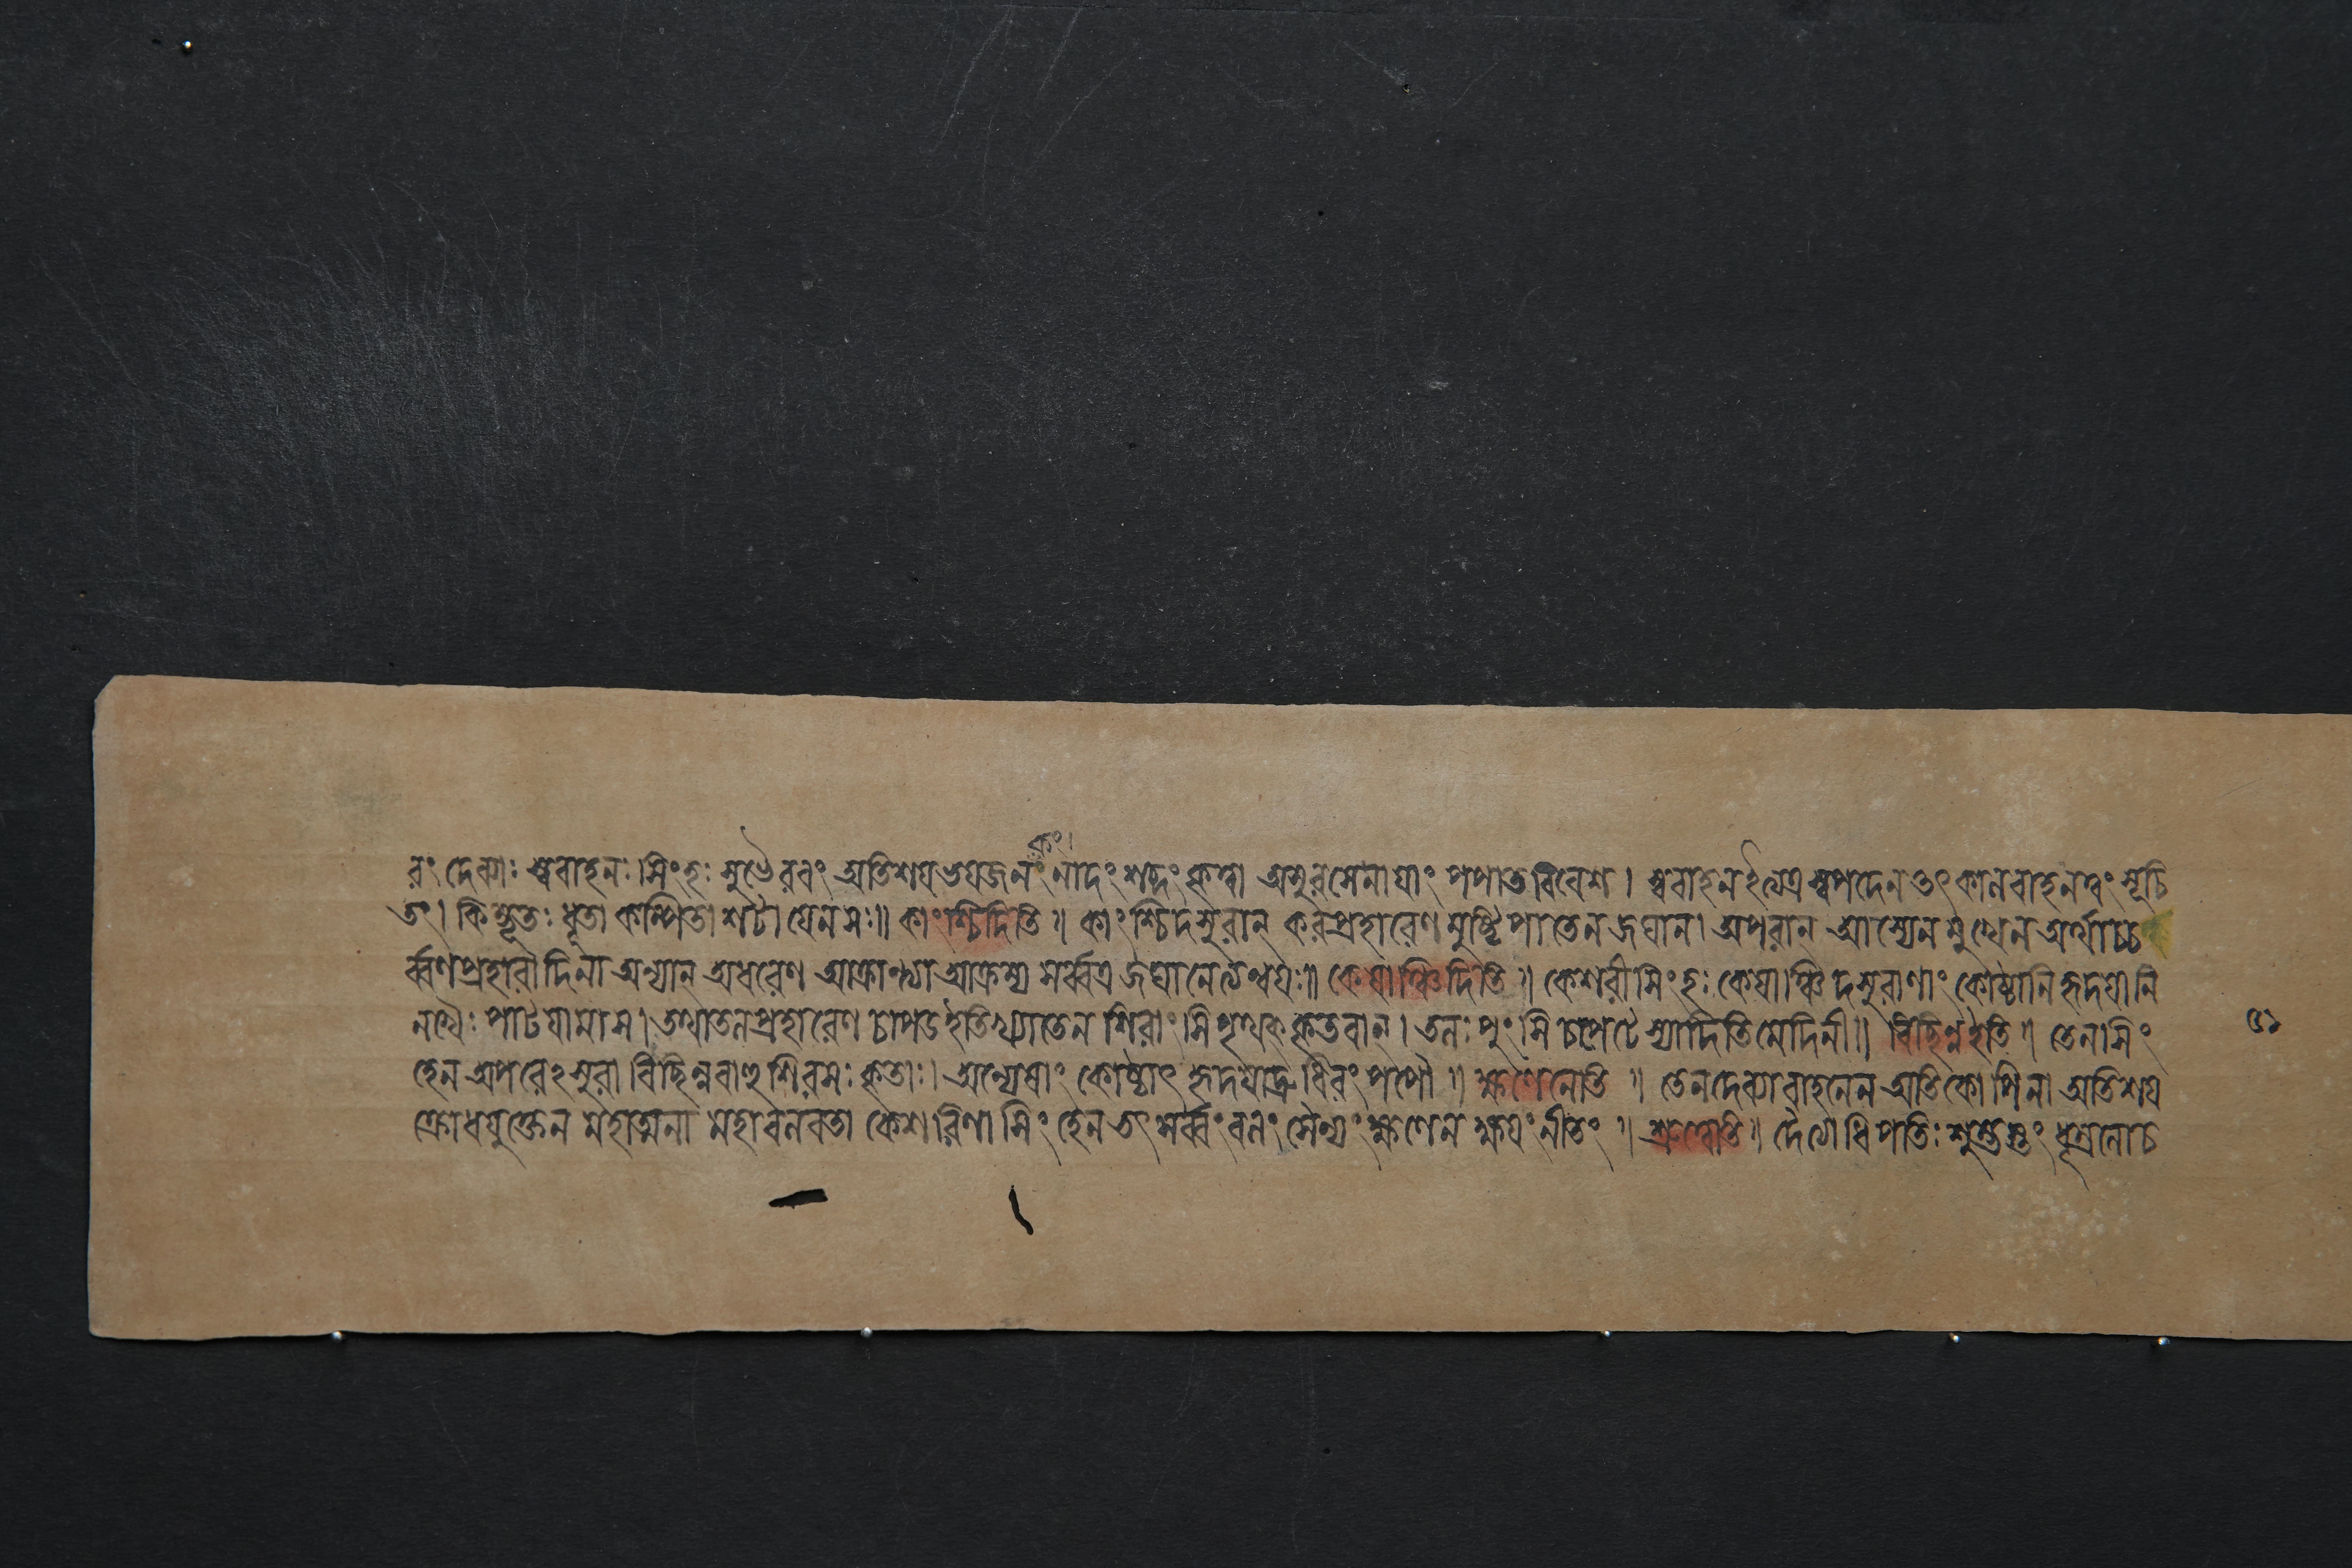 কং।
রং দেব্যাঃ স্ববাহনঃ সিংহঃ সুভৈরবং অতিশয়ভয়জনং নাদং শব্দং কৃত্বা অসুরসেনায়াং পপাত বিবেশ। স্ববাহন ইত্যত্র স্বপদেন তৎকালবাহনত্বং সূচি
তং। কিম্ভূতঃ ধূতা কম্পিতা শটা যেন সঃ॥ কাংশ্চিদিতি॥ কাংশ্চিদসুরান্ করপ্রহারেণ মুষ্টিপাতেন জঘান। অপরান্ আস্যেন মুখেন অর্থাচ্চ
র্ব্বণপ্রহারাদিনা অন্যান্ অধরেণ আক্রান্ত্যা আক্রম্য সর্ব্বত্র জঘানেত্যন্বয়ঃ॥ কেষাঞ্চিদিতি॥ কেশরী সিংহঃ কেষাঞ্চিদসুরাণাং কোষ্ঠানি হৃদয়ানি
নখৈঃ পাটয়ামাস। তথা তলপ্রহারেণ চাপড ইতি খ্যাতেন শিরাংসি পৃথক্ কৃতবান্। তলঃ পুংসি চপেটে স্যাদিতি মেদিনী॥ বিচ্ছিন্ন ইতি॥ তেন সিং
হেন অপরেঽসুরা বিচ্ছিন্নবাহুশিরসঃ কৃতাঃ। অন্যেষাং কোষ্ঠাৎ হৃদয়াদ্রুধিরং পপৌ॥ ক্ষণেনেতি॥ তেন দেব্যা বাহনেন অতিকোপিনা অতিশয়
ক্রোধযুক্তেন মহাত্মনা মহাবলবতা কেশরিণা সিংহেন তৎ সর্ব্বং বলং সৈন্যং ক্ষণেন ক্ষয়ং নীতং॥ শ্রুত্বেতি॥ দৈত্যাধিপতিঃ শুম্ভস্তং ধূম্রলোচ
৫১